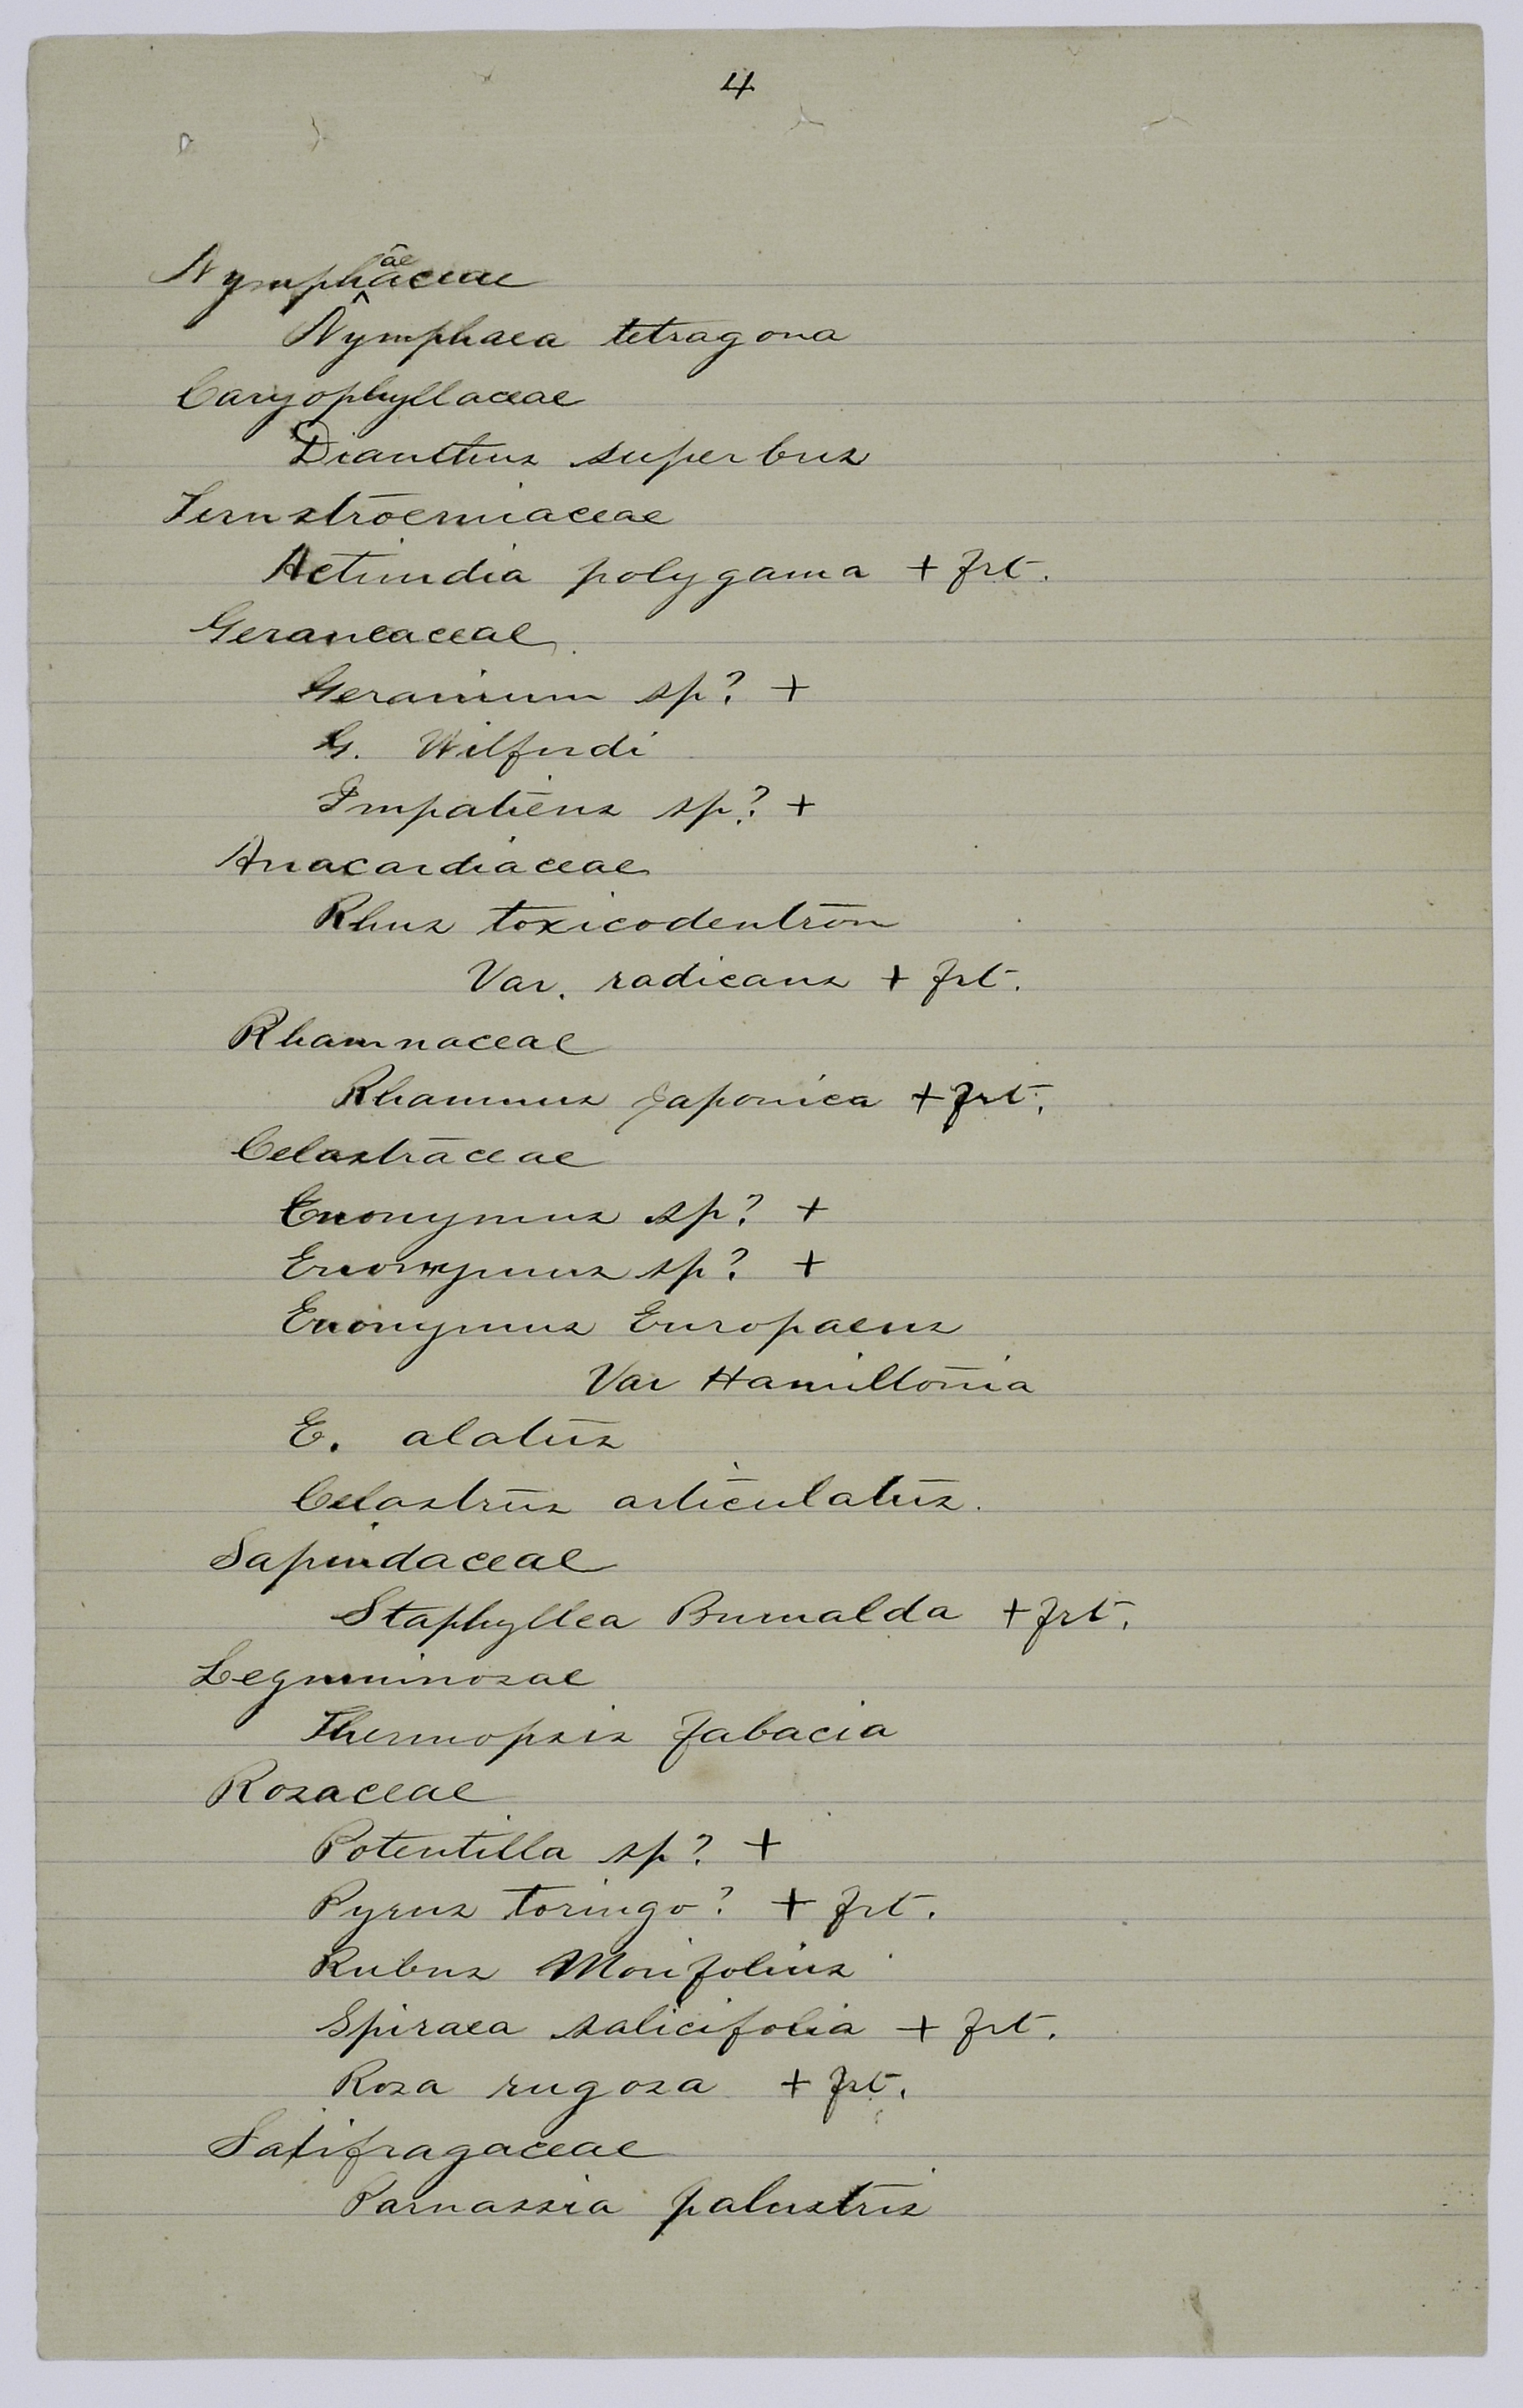 4
Nymphaeaceae
Nymphaea tetragona
Caryophyllaceae
Dianthus superbus
Ternstroemiaceae
Actindia polygama + frt.
Geraneaceae
Geranium sp? +
G. Wilfrdi
Impatiens sp? +
Anacardiaceae
Rhus toxicodentron
Var. radicans + frt.
Rhamnaceae
Rhamnus japonica + frt.
Celastraceae
Euonymus sp? +
Euonymus sp? +
Euonymus Europaeus
Var Hamiltonia
E. alatus
Celastrus articulatus.
Sapindaceae
Staphyllea Bumalda + frt.
Leguminosae
Thermopsis fabacia
Rosaceae
Potentilla sp? +
Pyrus toringo? + frt.
Rubus Morifolius
Spiraea salicifolia + frt.
Rosa rugosa + frt.
Saxifragaceae
Parnassia palustris